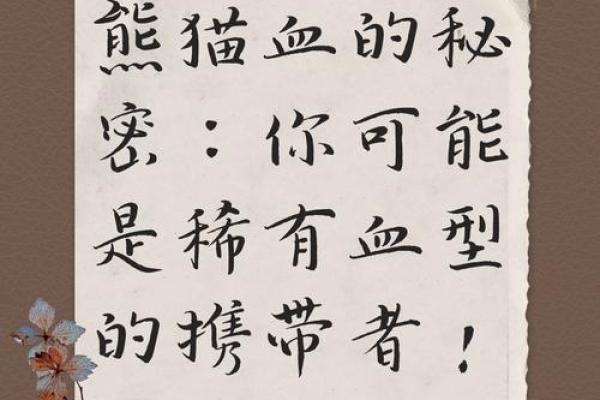 熊猫血的秘
密：你可能
是稀有血型
的携带者！